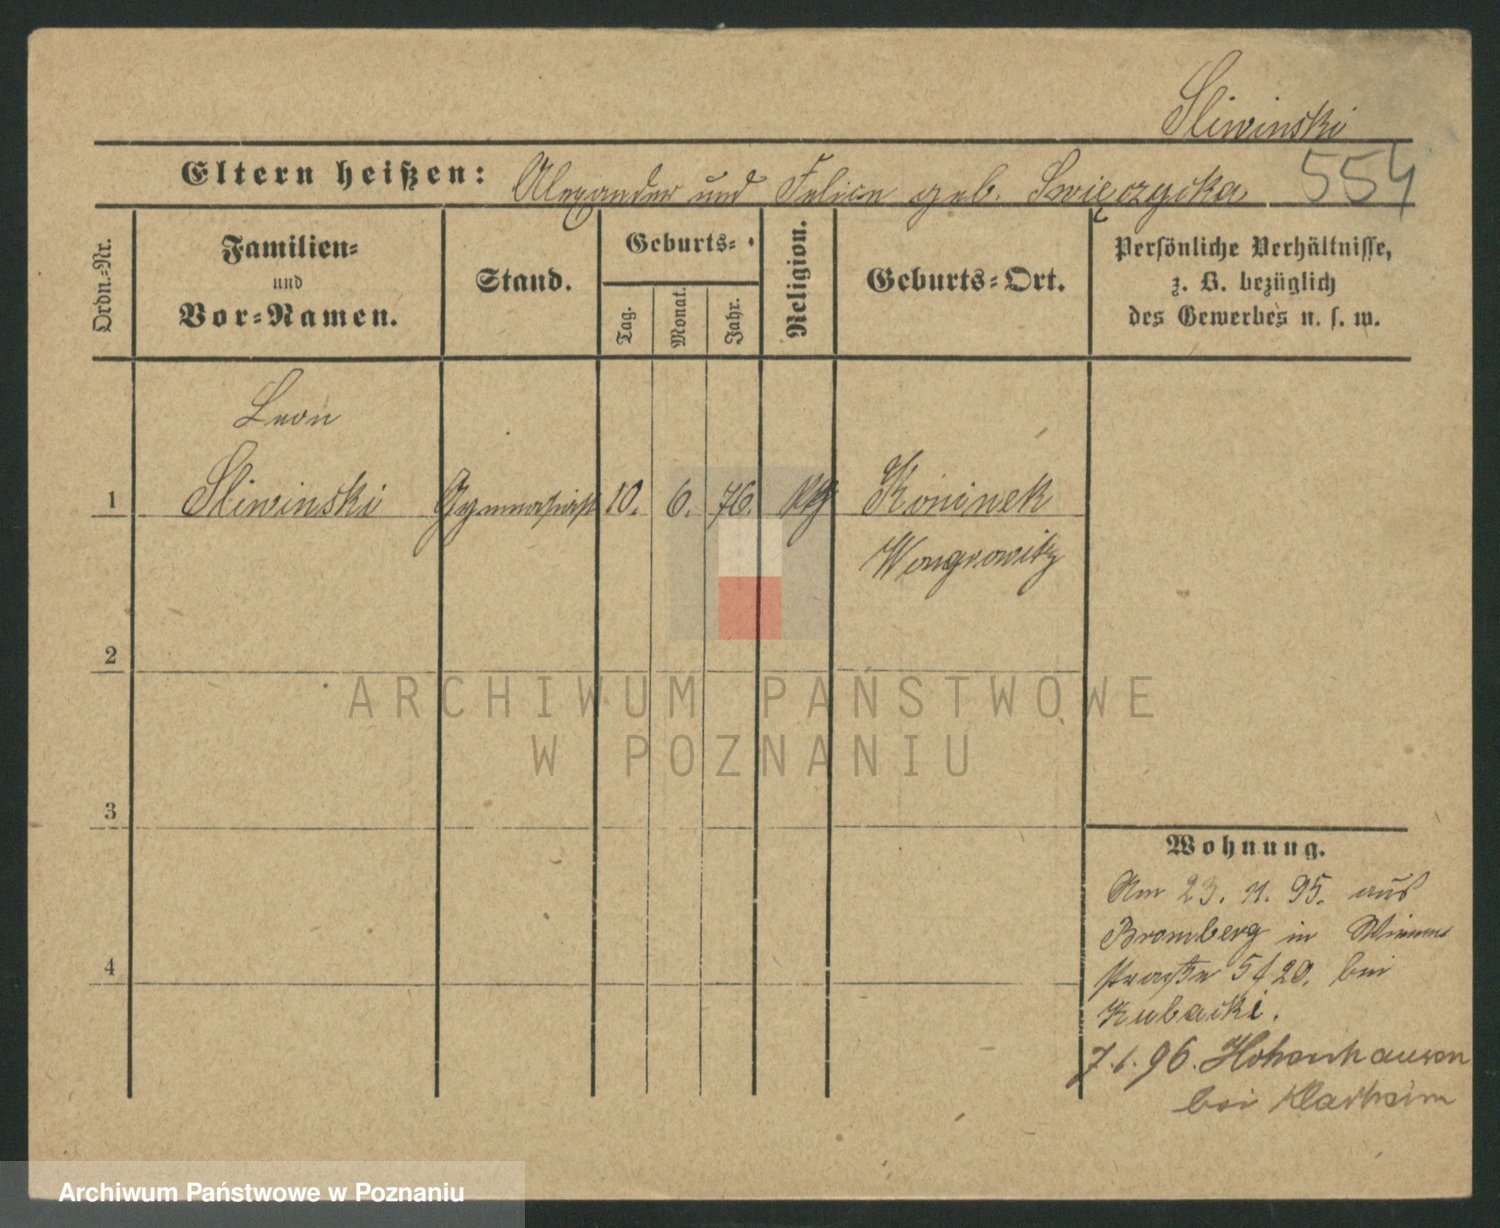 Sliwinski
Eltern heißen: Alexander und Felice geb. Swięczycka
554
Ordn.-Nr.
Familien-
und
Vor-Namen.
Stand.
Geburts-
Tag.
Monat.
Jahr.
Religion.
Geburts-Ort.
Persönliche Verhältnisse,
z. B. bezüglich
des Gewerbes u. s. w.
Leon
1 Sliwinski Gymnasiast 10. 6. 76. Koninek
Wongrowitz
2
3
4
ARCHIWUM PAŃSTWOWE
W POZNANIU
Wohnung.
Am 23. 11. 95. aus
Bromberg in
straße 5 / 20. bei
Kubacki.
7.1.96. Hohenhausen
bei Klarheim
Archiwum Państwowe w Poznaniu